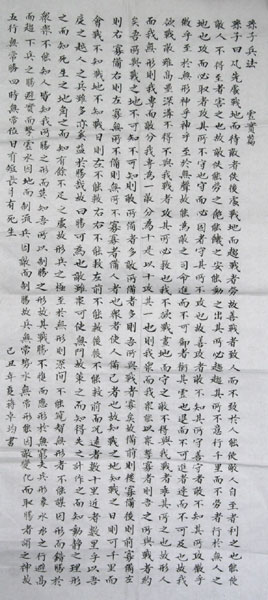 孫子兵法 虛實篇
孫子曰凡先處戰地而待敵者佚後處戰地而趨戰者勞故善戰者致人而不致於人能使敵人自至者利之也能使
敵人不得至者害之也故敵佚能勞之飽能饑之安能動之出其所必趨趨其所不意行千里而不勞者行於無人之
地也攻而必取者攻其所不守也守而必固者守其所不攻也故善攻者敵不知其所守善守者敵不知其所攻微乎
微乎至於無形神乎神乎至於無聲故能為敵之司命進而不可御者衝其虛也退而不可追者速而不可及也故我
欲戰敵雖高壘深溝不得不與我戰者攻其所必救也我不欲戰畫地而守之敵不得與我戰者乖其所之也故形人
而我無形則我專而敵分我專為一敵分為十是以十攻其一也則我眾而敵寡能以眾擊寡者則吾之所與戰者約
矣吾所與戰之地不可知不可知則敵所備者多敵所備者多則吾所與戰者寡矣故備前則後寡備後則前寡備左
則右寡備右則左寡無所不備則無所不寡寡者備人者也眾者使人備己者也故知戰之地知戰之日則可千里而
會戰不知戰地不知戰日則左不能救右右不能救左前不能救後後不能救前而況遠者數十里近者數里乎以吾
度之越人之兵雖多亦奚益於勝哉故曰勝可為也敵雖眾可使無鬥故策之而知得失之計作之而知動靜之理形
之而知死生之地角之而知有餘不足之處故形兵之極至於無形無形則深間不能窺智者不能謀因形而錯勝於
眾眾不能知人皆知我所以勝之形而莫知吾所以制勝之形故其戰勝不復而應形於無窮夫兵形象水水之行避高
而趨下兵之勝避實而擊虛水因地而制流兵因敵而制勝故兵無常勢水無常形能因敵變化而取勝者謂之神故
五行無常勝四時無常位日有短長月有死生
己丑年夏蔣卓均書